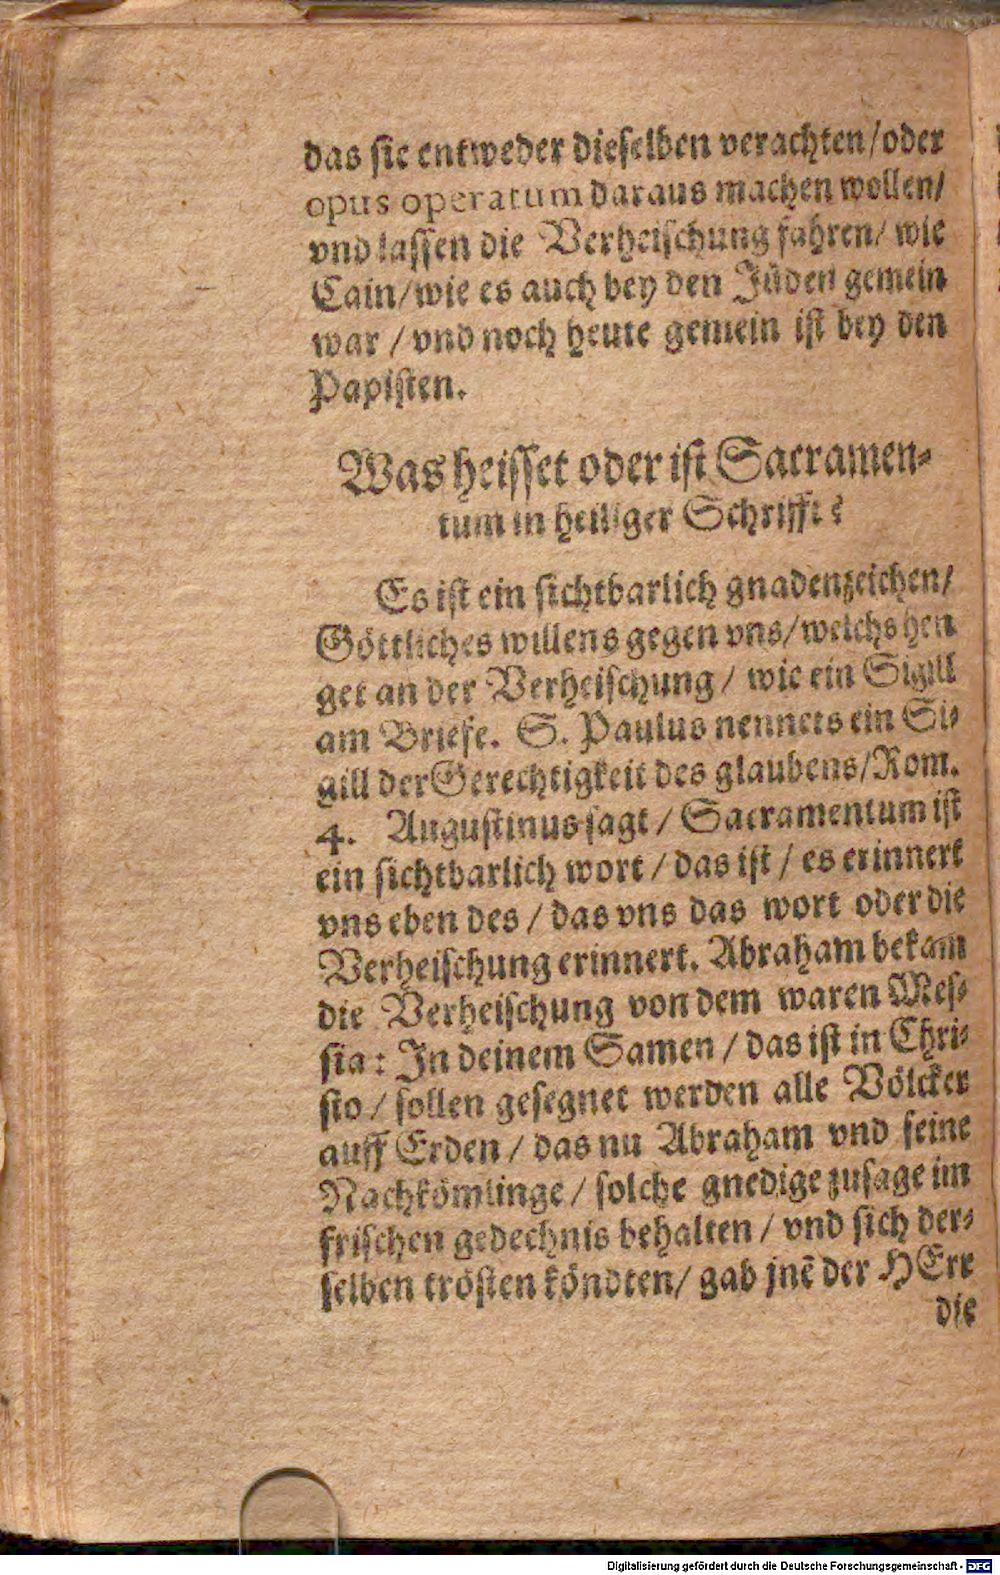 das sie entweder dieselben verachten/oder
opus operatum daraus machen wollen/
vnd lassen die Verheischung fahren/ wie
Cain/wie es auch bey den Jüden gemein
war / vnd noch heute gemein ist bey den
Papisten.
Was heisset oder ist Sacramen-
tum in heiliger Schrifft?
Es ist ein sichtbarlich gnadenzeichen/
Göttliches willens gegen vns/welchs hen
get an der Verheischung / wie ein Sigill
am Briefe. S. Paulus nennets ein Si-
gill der Gerechtigkeit des glaubens/Rom.
4. Augustinus sagt / Sacramentum ist
ein sichtbarlich wort / das ist / es erinnert
vns eben des / das vns das wort oder die
Verheischung erinnert. Abraham bekam
die Verheischung von dem waren Mes-
sia: In deinem Samen / das ist in Chri-
sto / sollen gesegnet werden alle Völcker
auff Erden / das nu Abraham vnd seine
Nachkömlinge / solche gnedige zusage im
frischen gedechnis behalten / vnd sich der-
selben trösten köndten/ gab jnẽ der HErr
die
Digitalisierung gefördert durch die Deutsche Forschungsgemeinschaft - DFG